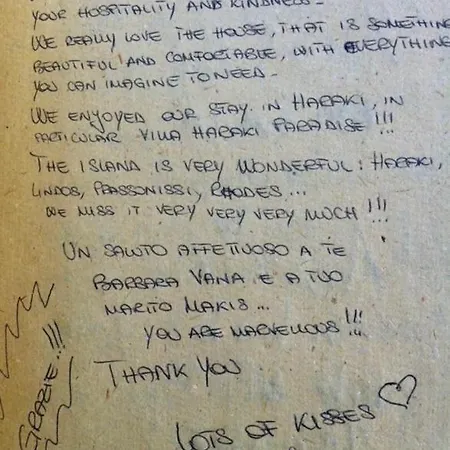 YOUR HOSPITALITY AND KINDNESS -
WE REALLY LOVE THE HOUSE, THAT IS SOMETHING
BEAUTIFUL AND COMFORTABLE, WITH EVERYTHING
YOU CAN IMAGINE TO NEED -
WE ENYOYED OUR STAY IN HARAKI, IN
PARTICULAR VILLA HARAKI PARADISE!!!
THE ISLAND IS VERY WONDERFUL: HARAKI,
LINDOS, PRASSONISSI, RHODES...
WE MISS IT VERY VERY VERY MUCH!!!
UN SALUTO AFFETTUOSO A TE
BARBARA VANA E A TUO
MARITO MAKIS...
YOU ARE MARVELLOUS!!!
THANK YOU
LOTS OF KISSES
GRAZIE!!!